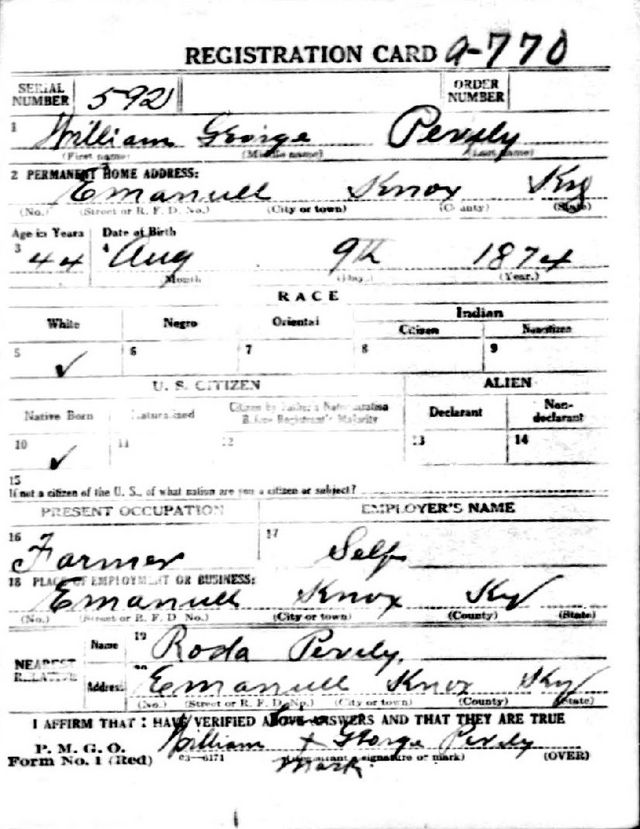 REGISTRATION CARD A-770
SERIAL NUMBER 592 ORDER NUMBER
1 William George Pevely
(First name) (Middle name) (Last name)
2 PERMANENT HOME ADDRESS:
Emanuell Knox Ky
(No.) (Street or R. F. D. No.) (City or town) (County) (State)
Age in Years Date of Birth
3 44 4 Aug 9th 1874
Month (Day.) (Year.)
RACE
White Negro Oriental Indian
Citizen Noncitizen
5 ✓ 6 7 8 9
U. S. CITIZEN ALIEN
Native Born Naturalized Citizen by Father's Naturalization Before Registrant's Majority Declarant Non-declarant
10 ✓ 11 12 13 14
15
If not a citizen of the U. S., of what nation are you a citizen or subject?
PRESENT OCCUPATION EMPLOYER'S NAME
16 Farmer 17 Self
18 PLACE OF EMPLOYMENT OR BUSINESS:
Emanuell Knox Ky
(No.) (Street or R. F. D. No.) (City or town) (County) (State)
NEAREST RELATIVE
Name 19 Roda Pevely.
Address 20 Emanuell Knox Ky
(No.) (Street or R. F. D. No.) (City or town) (County) (State)
I AFFIRM THAT I HAVE VERIFIED ABOVE ANSWERS AND THAT THEY ARE TRUE
P. M. G. O.
Form No. 1 (Red) 03—6171 William his x mark George Pevely
(Registrant's signature or mark) (OVER)